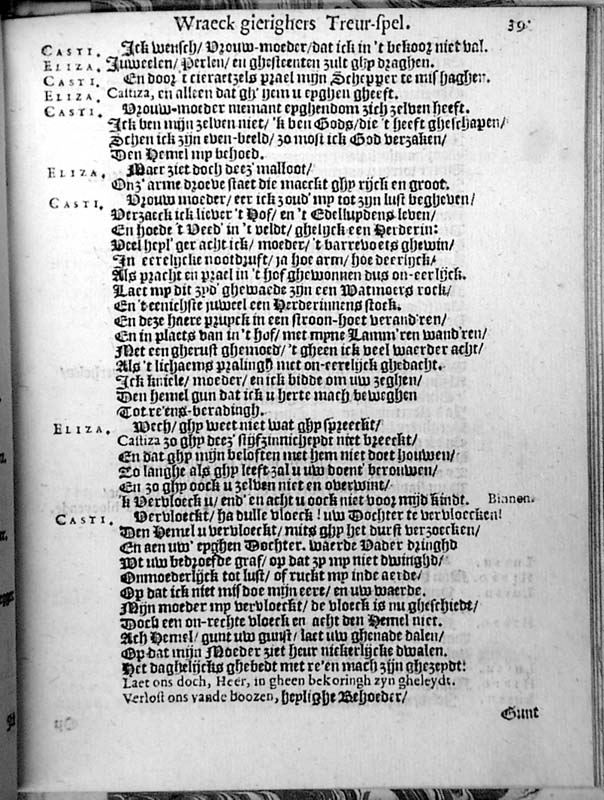 Wraeck gierighers Treur-spel. 39.
CASTI. Ick wensch/ Vrouw-moeder/ dat ick in 't bekoor niet val.
ELIZA. Juweelen/ Perlen/ en ghesteenten zult ghy draghen.
CASTI. En door 't cieraetzels prael mijn Schepper te mishaghen.
ELIZA. Castiza, en alleen dat gh' hem u eyghen gheeft.
CASTI. Vrouw-moeder niemant eyghendom zich zelven heeft.
Ick ben mijn zelven niet/ 'k ben Gods/ die 't heeft gheschapen/
Schen ick zijn even-beeld/ zo most ick God verzaken/
Den Hemel my behoed.
ELIZA. Maer ziet doch deez' malloot/
Onz' arme droeve staet die maeckt ghy rijck en groot.
CASTI. Vrouw moeder/ eer ick zoud' my tot zijn lust begheven/
Verzaeck ick liever 't Hof/ en 't Edelluydens leven/
En hoede 't Veed' in 't veldt/ ghelijck een Herderin:
Veel heyl'ger acht ick/ moeder/ 't barrevoets ghewin/
In eerelycke nootdruft/ ja hoe arm/ hoe deerlijck/
Als pracht en prael in 't hof ghewonnen dus on-eerlijck.
Laet my dit zyd' ghewaede zijn een Watmoers rock/
En 't eenichste juweel een Herderinnens stock.
En deze haere pruyck in een stroon-hoet verand'ren/
En in plaets van in 't hof/ met myne Lamm'ren wand'ren/
Met een gherust ghemoed/ 't gheen ick veel waerder acht/
Als 't lichaems pralingh met on-eerelijck ghedacht.
Ick kniele/ moeder/ en ick bidde om uw zeghen/
Den hemel gun dat ick u herte mach beweghen
Tot re'ens-beradingh.
ELIZA. Wech/ ghy weet niet wat ghy spreeckt/
Castiza zo ghy deez' stijfzinnicheydt niet breeckt/
En dat ghy mijn beloften met hem niet doet houwen/
Zo langhe als ghy leeft zal u uw doent' berouwen/
En zo ghy oock u zelven niet en overwint/
'k Vervloeck u/ end' en acht u oock niet voor mijd kindt. Binnen.
CASTI. Vervloeckt/ ha dulle vloeck! uw Dochter te vervloecken!
Den Hemel u vervloeckt/ mits ghy het durst verzoecken/
En aen uw' eyghen Dochter. waerde Vader dringhd
Wt uw bedroefde graf/ op dat zy my niet dwinghd/
Onmoederlijck tot lust/ of ruckt my inde aerde/
Op dat ick niet misdoe mijn eere/ en uw waerde.
Mijn moeder my vervloeckt/ de vloeck is nu gheschiedt/
Doch een on-rechte vloeck en acht den Hemel niet.
Ach Hemel/ gunt uw gunst/ laet uw ghenade dalen/
Op dat mijn Moeder ziet heur nickerlijcke dwalen.
Het daghelijcks ghebedt met re'en mach zijn ghezeydt:
Laet ons doch, Heer, in gheen bekoringh zyn gheleydt.
Verlost ons vande boozen, heylighe Behoeder/
Gunt